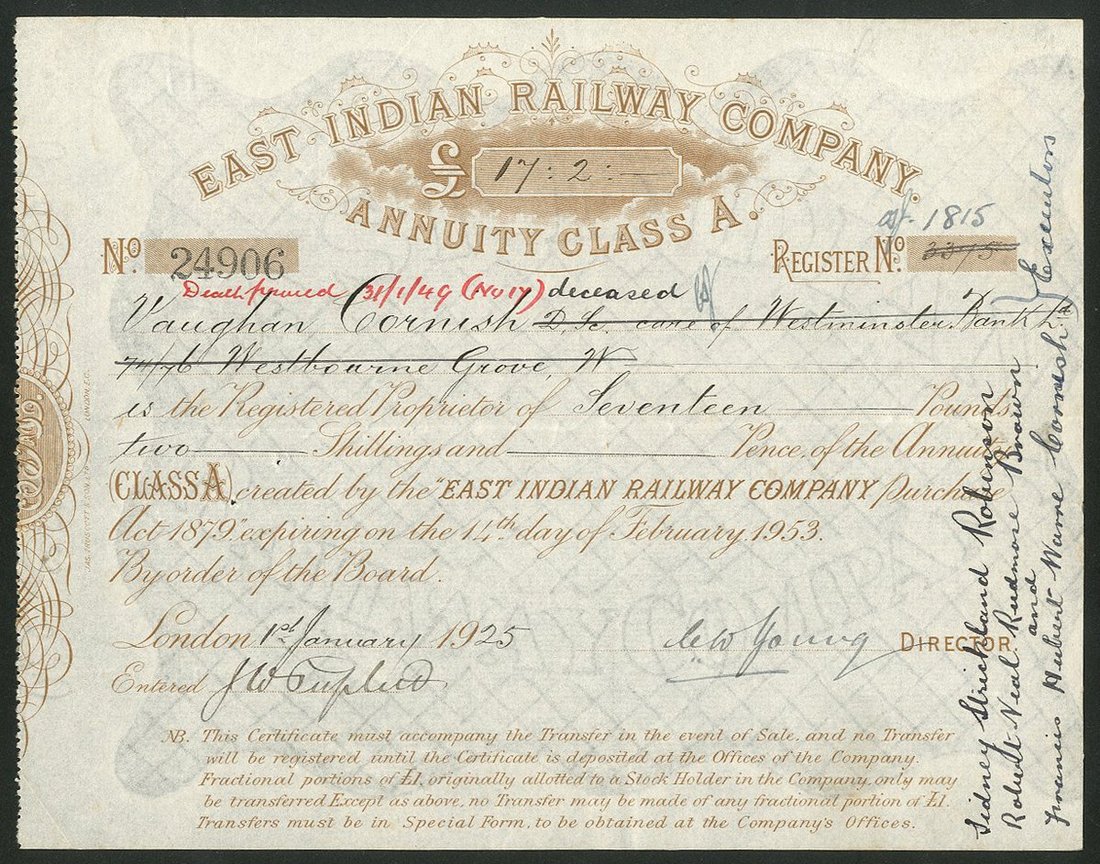 EAST INDIAN RAILWAY COMPANY.
£ 17 : 2 : —
ANNUITY CLASS A.
No. 24906
1815
REGISTER No. 3375
Death proved 31/1/49 (No 17) deceased
Vaughan Cornish D.Sc. care of Westminster Bank Ltd
74/76 Westbourne Grove, W
is the Registered Proprietor of Seventeen Pounds
two Shillings and Pence, of the Annuity
(CLASS A), created by the "EAST INDIAN RAILWAY COMPANY purchase
Act 1879" expiring on the 14th day of February, 1953.
By order of the Board.
London 1st January 1925
C W Young DIRECTOR.
Entered J W
NB. This Certificate must accompany the Transfer in the event of Sale, and no Transfer
will be registered until the Certificate is deposited at the Offices of the Company.
Fractional portions of £1, originally allotted to a Stock Holder in the Company, only may
be transferred Except as above, no Transfer may be made of any fractional portion of £1.
Transfers must be in Special Form, to be obtained at the Company's Offices.
Sidney Strickland Robinson
Robert Neal Rudmose Brown
and
Francis Hubert Warre Cornish
Executors
LONDON, E.C.